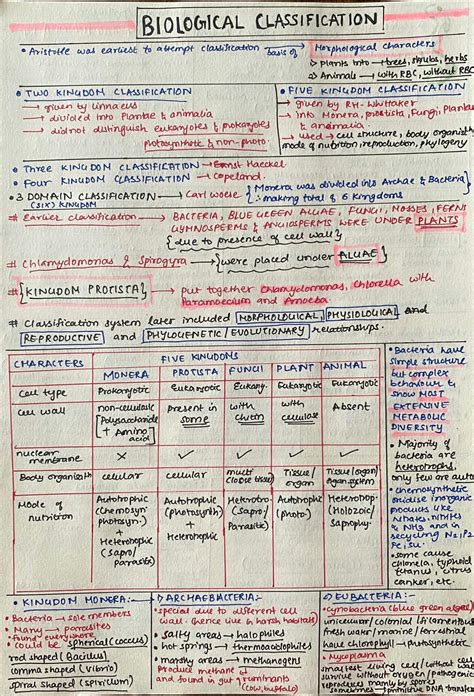 BIOLOGICAL CLASSIFICATION
• Aristotle was earliest to attempt classification basis of Morphological characters
↳ Plants into → trees, shrubs, herbs
↳ Animals → with RBC, without RBC
• TWO KINGDOM CLASSIFICATION
→ given by Linnaeus
→ divided into Plantae & animalia
→ did not distinguish eukaryotes & prokaryotes,
photosynthetic & non-photo.
• FIVE KINGDOM CLASSIFICATION
→ given by RH- Whittaker
→ into Monera, protista, Fungi, Plantae
& animalia
→ used → cell structure, body organisn
mode of nutrition, reproduction, phylogeny
• THREE KINGDOM CLASSIFICATION → Ernst Haeckel
• FOUR KINGDOM CLASSIFICATION → Copeland.
• 3 DOMAIN CLASSIFICATION → Carl woese
(SIX) KINGDOM
Monera was divided into Archae & Bacteria
∴ making total of 6 kingdoms
# Earlier classification → BACTERIA, BLUE GREEN ALGAE, FUNGI, MOSSES, FERNS
GYMNOSPERMS & ANGIOSPERMS WERE UNDER PLANTS
{due to presence of cell wall}
# Chlamydomonas & Spirogyra → {were placed under ALGAE}
# {KINGDOM PROTISTA} → put together Chlamydomonas, Chlorella with
Paramoecium and Amoeba.
# Classification system later included MORPHOLOGICAL, PHYSIOLOGICAL and
REPRODUCTIVE and PHYLOGENETIC/EVOLUTIONARY relationships.
CHARACTERS FIVE KINGDOMS
MONERA PROTISTA FUNGI PLANT ANIMAL
Cell type Prokaryotic Eukaryotic Eukary. Eukaryotic Eukaryot
Cell wall non-cellulosic [Polysaccharide + Amino acid] present in some with chitin with cellulose Absent
nuclear membrane × ✓ ✓ ✓ ✓
Body organisatn cellular cellular multi (loose tissue) Tissue/organ Tissue/organ/organ system
Mode of nutrition Autotrophic (chemosyn. photosyn.) + Heterotrophic (sapro/parasites) Autotrophic (photosynth) + Heterotrophic Heterotro (Sapro/Parasitic) Autotrophic (photo.) Heterotrop (Holozoic/Saprophy.
• Bacteria have
simple structure
but complex
behaviour &
show MOST
EXTENSIVE
METABOLIC
DIVERSITY
• Majority of
bacteria are
heterotrophs,
only few are auto
• chemosynthetic
oxidise inorganic
products like
Nitrates, Nitrites
& NH3 and in
recycling N2, P,
Fe, Su.
• some cause
cholera, typhoid
tetanus, citrus
canker, etc.
• KINGDOM MONERA:
• Bacteria → sole members
• Many → parasites
• found everywhere
• could be spherical (coccus)
rod shaped (Bacillus)
comma shaped (vibrio)
spiral shaped (spirillum)
ARCHAEBACTERIA:
• special due to different cell
wall (hence live in harsh habitats)
salty areas → halophiles
hot springs → thermoacidophiles
marshy areas → methanogens
Produce methane &
and found in gut of ruminants
(cow, buffalo)
EUBACTERIA:
• cynobacteria (blue green algae)
unicellular/colonial/filamentous
fresh water/marine/terrestrial
have chlorophyll → photosynthetic
• Mycoplasma
smallest living cell/without cell
survive without oxygen/pathogenic
reproduces mainly by spores